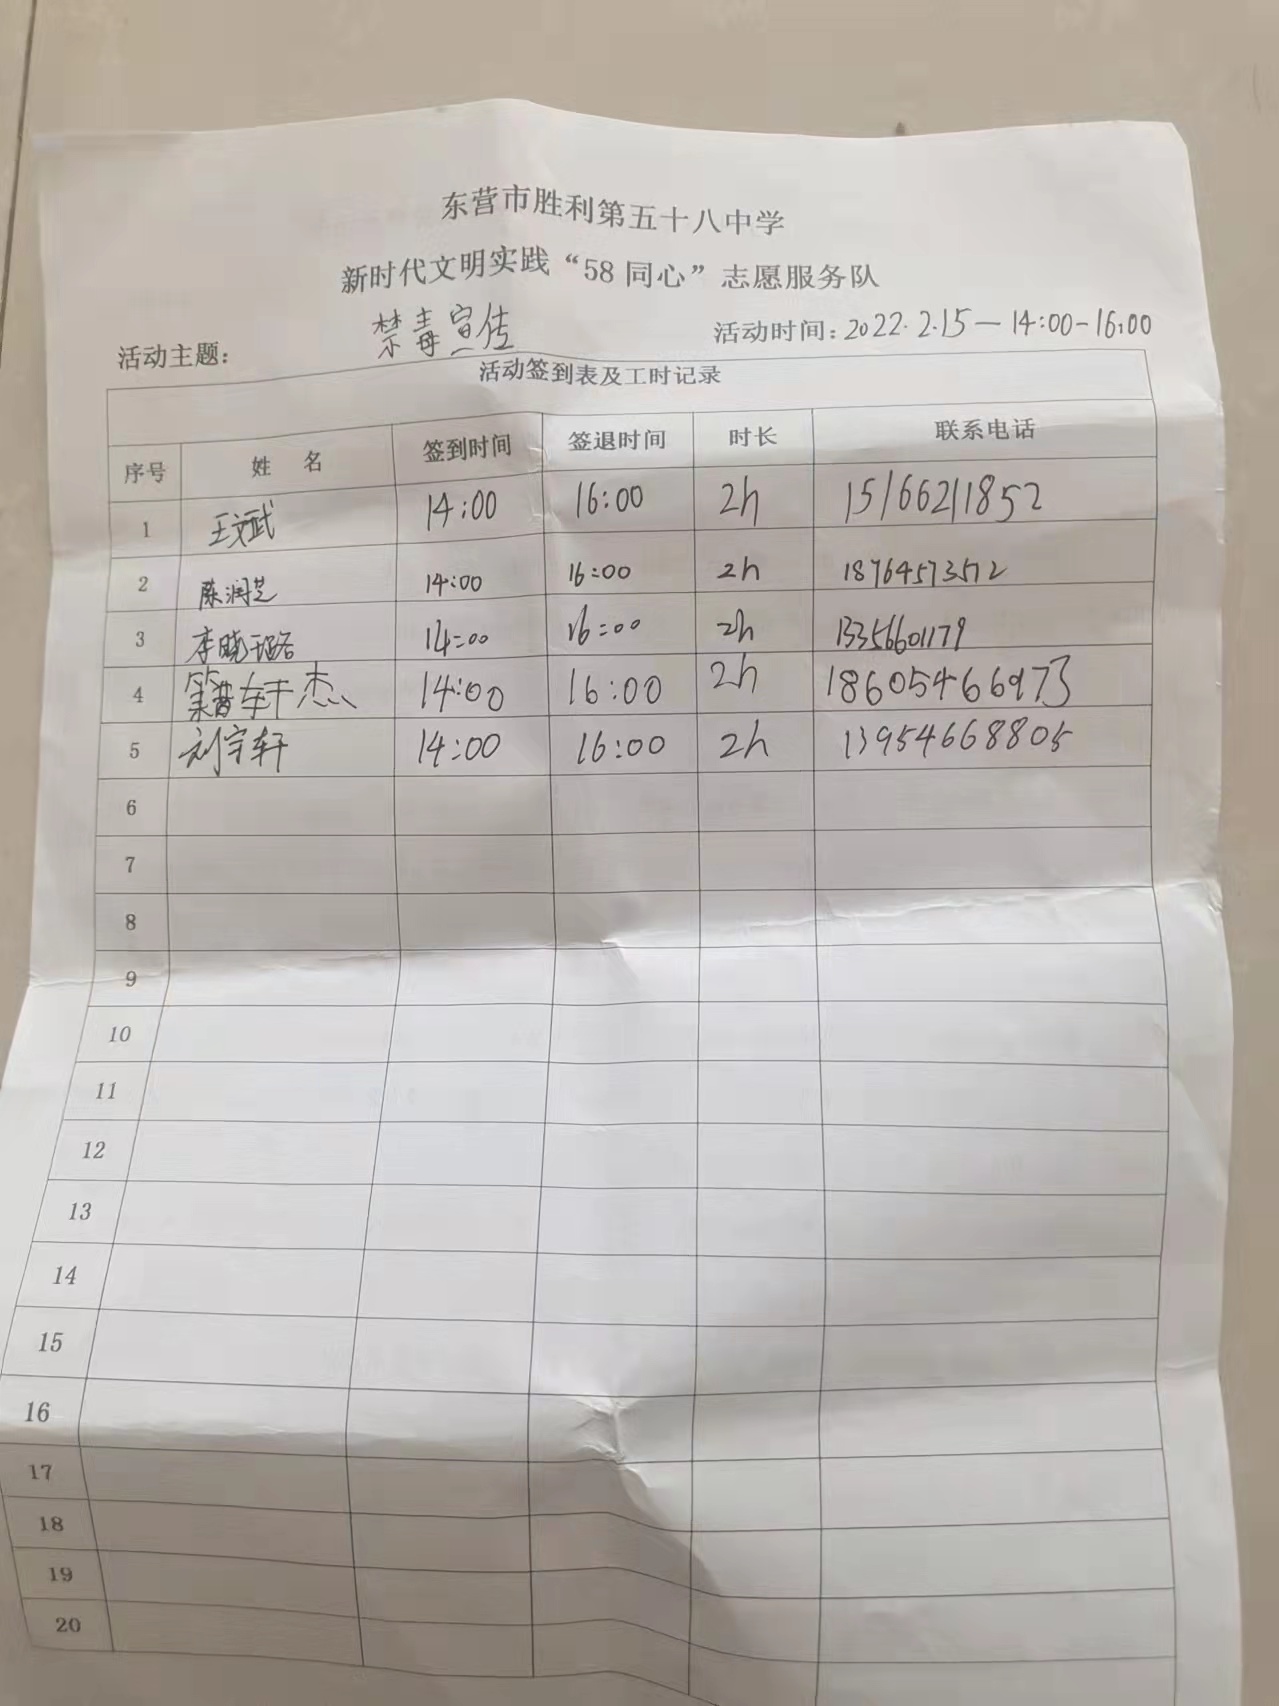 东营市胜利第五十八中学
新时代文明实践“58同心”志愿服务队
活动主题: 禁毒宣传 活动时间: 2022.2.15—14:00-16:00
活动签到表及工时记录
序号 姓 名 签到时间 签退时间 时长 联系电话
1 王文武 14:00 16:00 2h 15166211852
2 陈润芝 14:00 16:00 2h 18764573512
3 李晓璐 14:00 16:00 2h 13356601179
4 14:00 16:00 2h 18605466973
5 刘宇轩 14:00 16:00 2h 13954668805
6
7
8
9
10
11
12
13
14
15
16
17
18
19
20